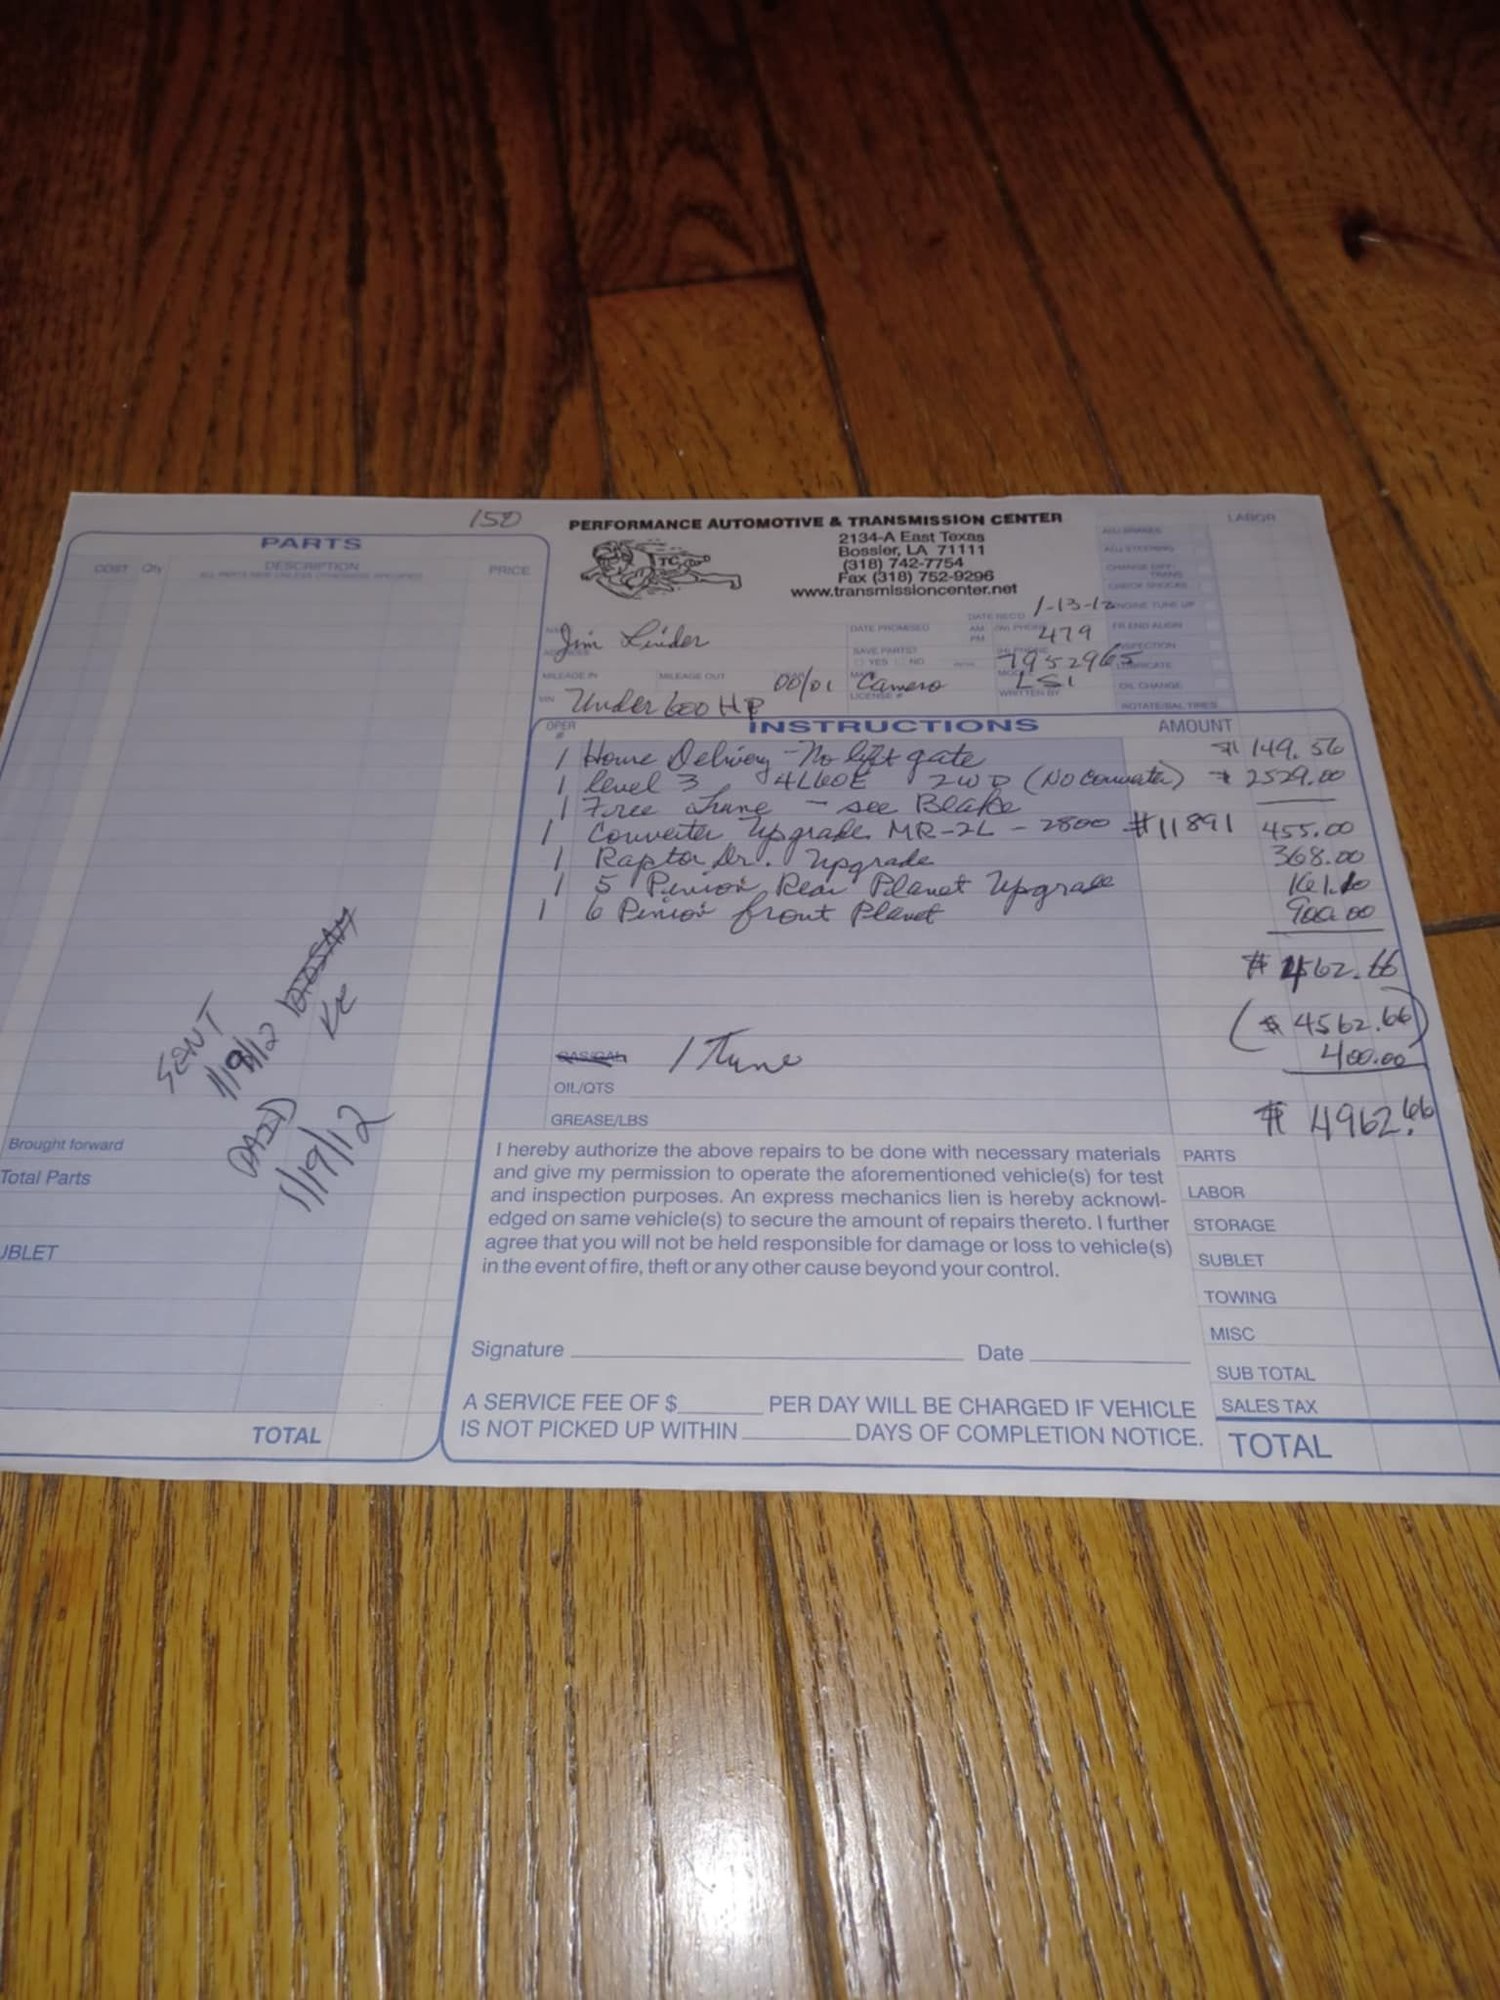 150
PERFORMANCE AUTOMOTIVE & TRANSMISSION CENTER
2134-A East Texas
Bossier, LA 71111
(318) 742-7754
Fax (318) 752-9296
www.transmissioncenter.net
TC
PARTS
COST Qty DESCRIPTION PRICE
LABOR
ADJ BRAKES
ADJ STEERING
CHECK SHOCKS
ENGINE TUNE UP
FR END ALIGN
INSPECTION
LUBRICATE
OIL CHANGE
ROTATE/BAL TIRES
DATE REC'D 1-13-12
Jim Linder
DATE PROMISED AM PM 479
SAVE PARTS YES NO 7952965
MILEAGE IN MILEAGE OUT 00/01 Camero LS1
LICENSE # WRITTEN BY
VIN Under 600 HP
OPER # INSTRUCTIONS AMOUNT
1 Home Delivery - No lift gate $ 149.56
1 level 3 4L60E 2WD (No Converter) $ 2529.00
1 Free Tune - see Blake
1 Converter Upgrade MR-2L - 2800 #11891 455.00
1 Raptor Dr. Upgrade 368.00
1 5 Pinion Rear Planet Upgrade 161.10
1 6 Pinion front Planet 900.00
$ 4562.66
($ 4562.66)
GAS/GAL 1 Tune 400.00
OIL/QTS
GREASE/LBS $ 4962.66
SENT
1/19/12
KC
PAID
1/19/12
Brought forward
Total Parts
UBLET
TOTAL
I hereby authorize the above repairs to be done with necessary materials
and give my permission to operate the aforementioned vehicle(s) for test
and inspection purposes. An express mechanics lien is hereby acknowl-
edged on same vehicle(s) to secure the amount of repairs thereto. I further
agree that you will not be held responsible for damage or loss to vehicle(s)
in the event of fire, theft or any other cause beyond your control.
Signature Date
A SERVICE FEE OF $ PER DAY WILL BE CHARGED IF VEHICLE
IS NOT PICKED UP WITHIN DAYS OF COMPLETION NOTICE.
PARTS
LABOR
STORAGE
SUBLET
TOWING
MISC
SUB TOTAL
SALES TAX
TOTAL